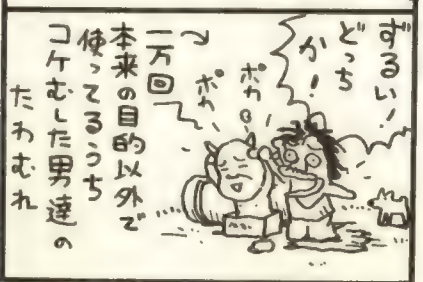 ずるい!
どっち
か!
ポカ
ポカ
二万回
本来の目的以外で
使ってるうち
コケむした男達の
たわむれ